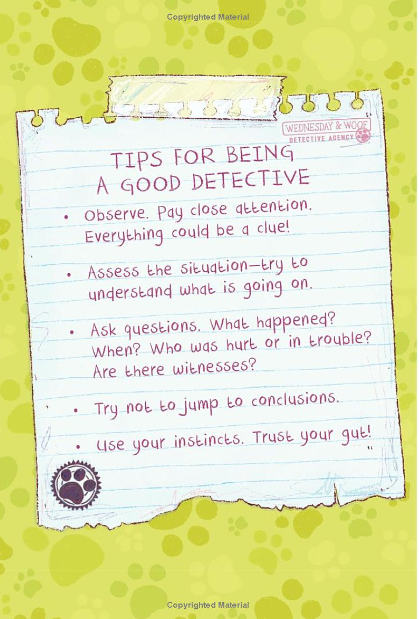 Copyrighted Material
WEDNESDAY & WOOF
DETECTIVE AGENCY
TIPS FOR BEING
A GOOD DETECTIVE
• Observe. Pay close attention.
Everything could be a clue!
• Assess the situation—try to
understand what is going on.
• Ask questions. What happened?
When? Who was hurt or in trouble?
Are there witnesses?
• Try not to jump to conclusions.
• Use your instincts. Trust your gut!
Copyrighted Material